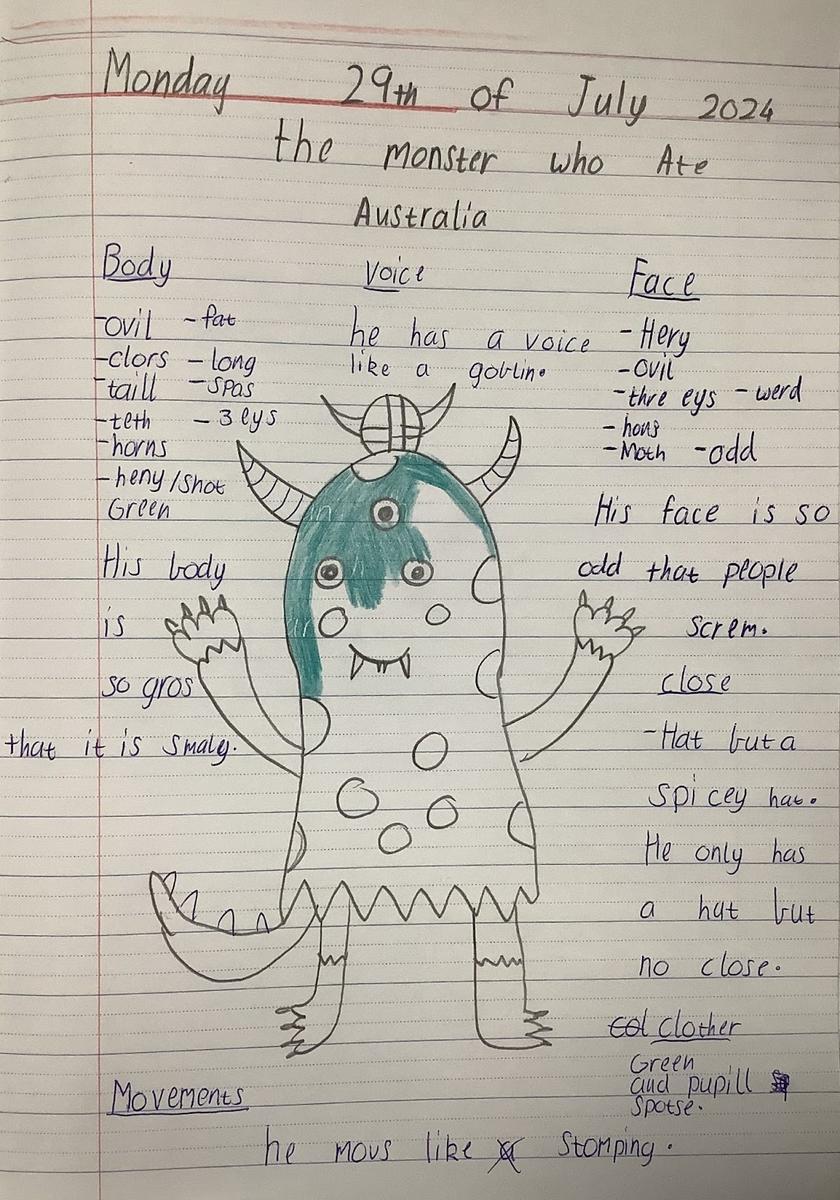 Monday 29th of July 2024
the monster who Ate
Australia
Body
-ovil -fat
-clors -long
-taill -spas
-teth -3 eys
-horns
-heny/shot
Green
His body
is
so gros
that it is smaly.
Voice
he has a voice
like a goblin.
Face
-Hery
-ovil
-thre eys -werd
-hons
-Moth -odd
His face is so
odd that people
screm.
close
-Hat but a
spicey hat.
He only has
a hat but
no close.
col clother
Green
and pupill
spotse.
Movements
he movs like stomping.